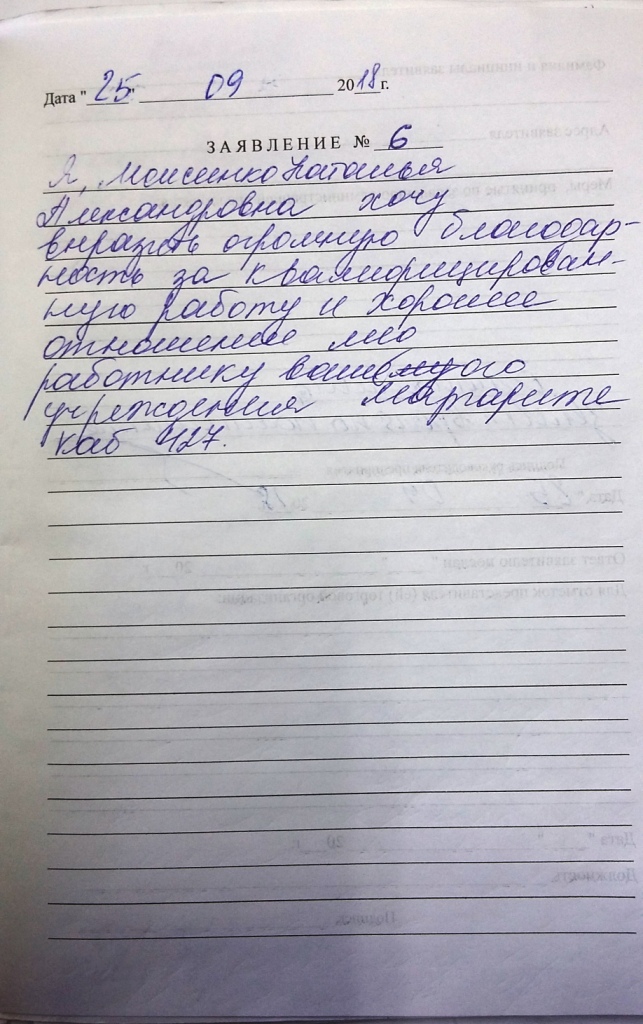 Дата "25" 09 2018 г.
ЗАЯВЛЕНИЕ № 6
Я, Моисенко Наталья
Александровна хочу
выразить огромную благодар-
ность за квалифицирован-
ную работу и хорошее
отношение
работнику вашего
учреждения Маргарите
каб 427.